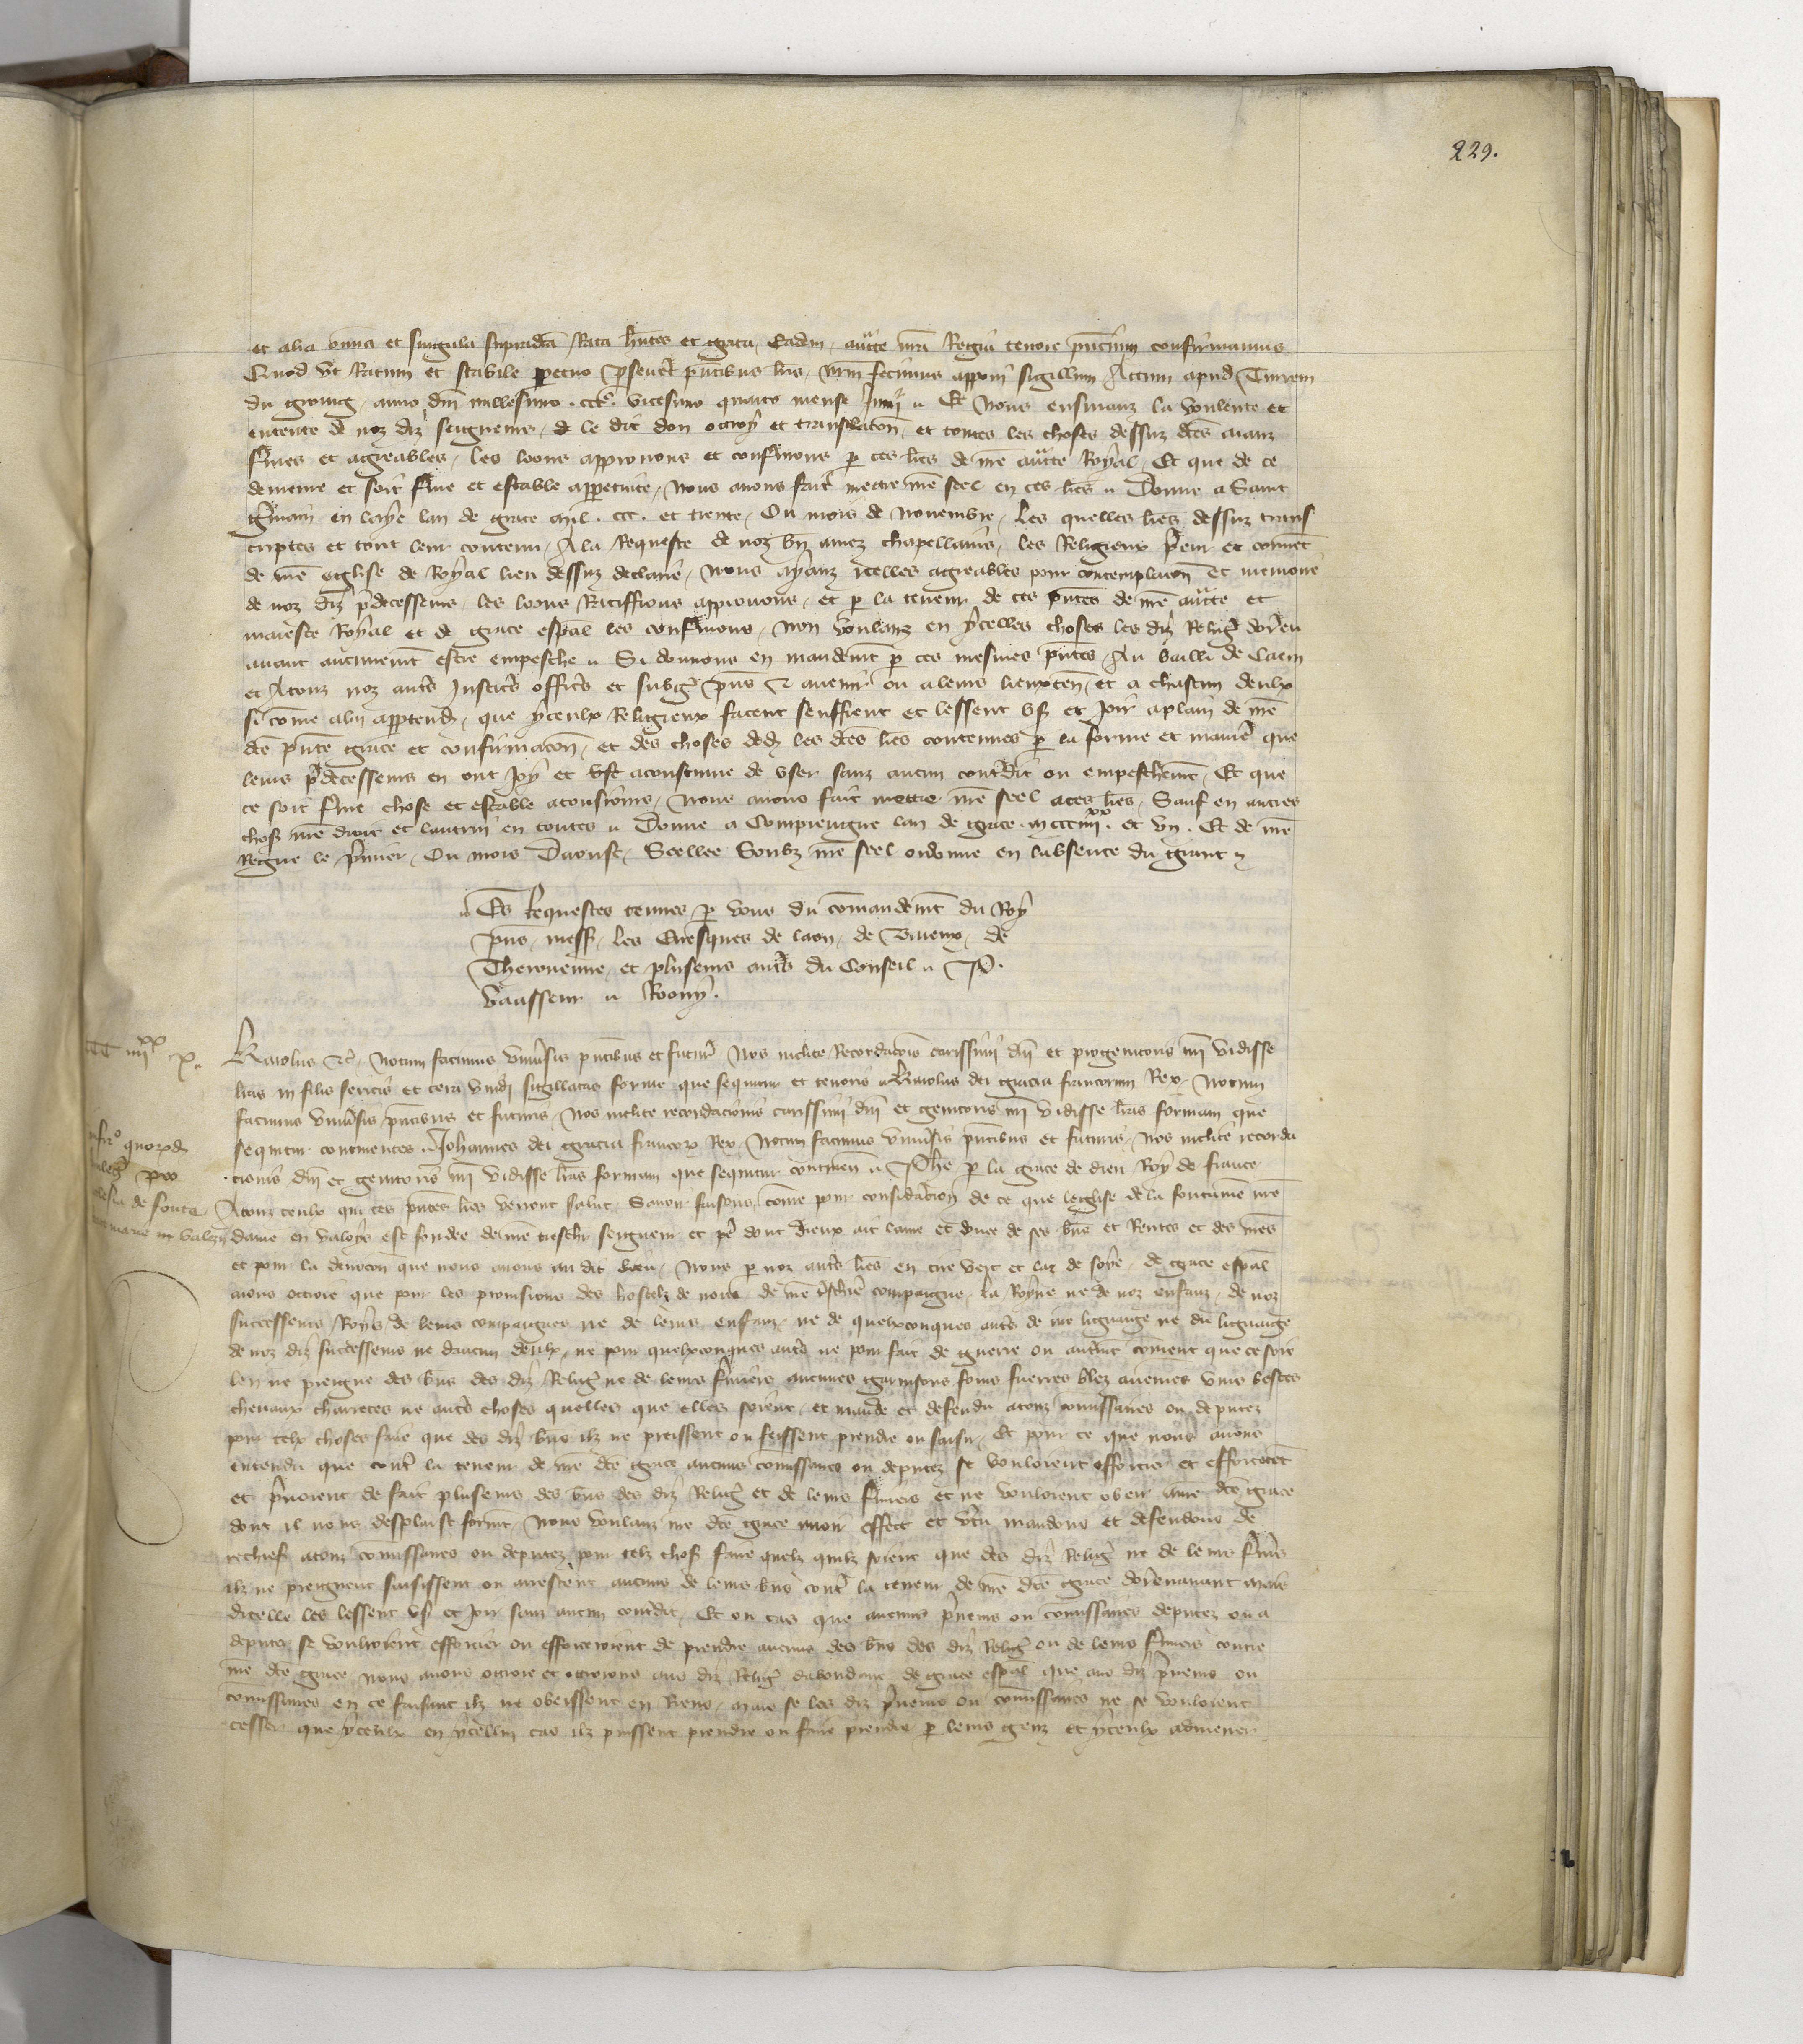 229.
et alia omnia et singula supradcā Rata hntes et grata, Eadem, aucte nrā Regia tenore pncium confirmamus
Quod ut Ratum et stabile perpetuo perseveret pntibus lris, nrm fecimus apponi sigillum Actum apud Turrem
du groing, anno dni millesimo .ccc°. vicesimo quarto mense Junii. Et Nous ensuianz la voulente et
entente de noz diz seigneurs, et le dit don ottroy et translacōn, et toutes les choses dessuz dcēs aianz
fmes et agreables, les loons approuvons et confmons p ces lres de nrē aucte Royal, Et que ce
demeure et soit fme et estable appetuite, nous avons fait mettre nrē seel en ces lres. Donne a Saint
Gmain en laye lan de grace mil. ccc. et trente, Ou mois de Novembre, Les quelles lres dessuz trans
criptes et tout leur contenu, A la Requeste de noz bn amez chapellains, les Religieux prieur et convēt
de nrē eglise de Royal lieu dessuz declairie, nous ayanz icelles agreables pour contemplacon et memoire
de noz diz predecesseurs, les loons Ratiffions approuvons, et p la teneur de ces pntes de nrē aucte et
maieste Royal et de grace espal les confmons, non voulanz en ycelles choses les diz Relig doren
avant aucunemt estre empesche. Si donnons en mandemt p ces mesmes pntes, Au bailli de Caen
et Atouz noz autres Justiciers officiers et subgez pns et avenir ou a leurs lieuxten, et a chascun deulx
si come alui appartendra, que yceulx Religieux facent seuffrent et lessent user et joir aplain de nrē
dcē pnte grace et confirmacōn, et des choses dedens les dcēs lres contenues p la forme et maniere que
leurs predecesseurs en ont joy et use acoustume de user sanz aucun contredit ou empeschemt, Et que
ce soit fme chose et estable atousiours, nous avons fait mettre nrē seel aces lres, Sauf en autres
choses nrē droit et lautrui en toutes. Donne a Compiengne lan de grace. m ccc iiii xx. et un. Et de nrē
Regne le premier, Ou mois Daoust, Scellee Soubz nrē seel ordonne en labsence du grant
Es Requestes tenues p vous du comandemt du Roy
pns, mess. les Evesques de laon, de Baieux, de
Therouenne, et pluseurs autres du Conseil. P.
Vausseur. Roony.
ccc iiii xx x.
Karolus etc. Notum facimus universis pntibus et futuris Nos inclite Recordacionis carissimi dni et progenitoris nri vidisse
lras in filis sericis et cera viridi sigillatas forme que sequitur et tenoris. Karolus dei gracia francorum Rex, Notum
facimus universis pntibus et futuris, Nos inclite recordacionis carissimi dni et genitoris nri vidisse lras formam que
sequitur continentes. Johannes dei gracia francorum Rex, Notum facimus universis pntibus et futuris, Nos inclite recorda
cionis dni et genitoris nri vidisse lras formam que sequitur continen. Phe p la grace de dieu Roy de france
Atouz ceulx qui ces pntes lres verront salut, Savoir faisons, come pour consideracion de ce que leglise de la fontaine nre
dame en valoys est fondee de nrē treschr seigneur et pere dont dieux ait lame et douee de ses bns et Rentes et des nres
et pour la devocon que nous avons au dit lieu, Nous p noz autres lres en cire vert et laz de soye, de grace espal
aions ottroie que pour les provisions des hostelz de nous de nrē treschiere compaigne la Royne ne de noz enfanz, de noz
successeurs Roys de leurs compaignes ne de leurs enfanz, ne de quelxconques autres de nre lignaige ne du lignaige
de noz diz successeurs ne daucun deulx, ne pour quelxconques autres ne pour fait de guerre ou autremt coment que ce soit
len ne preigne des bns des diz Relig ne de leurs fmiers aucunes garnisons foins fuerres blez avenes vins bestes
chevaux charretes ne autres choses quelles que elles soient, et mande et defendu atouz comissaires ou deputez
pour telx choses faire que des diz bns ilz ne preissent ou feissent prendre ou saisir, Et pour ce que nous avons
entendu que contre la teneur de nre dcē grace aucuns comissaires ou deputez se vouloient efforcier et efforcoient
et prenoient de fait pluseurs des bns des diz Relig et de leurs fmiers et ne vouloient obeir anrē dcē grace
dont il nous desplaist formt, Nous voulanz nre dcē grace avoir effect et vertu mandons et defendons de
rechief atouz comissaires ou deputez pour telz choses faire quelz quilz soient que des diz Relig ne de leurs fmiers
ilz ne preignent saisissent ou arrestent aucuns de leurs bns contre la teneur de nrē dcē grace dorenavant mais
dicelle les lessent user et joir sanz aucun contredit, Et ou cas que aucuns preneurs ou comissaires deputez ou a
deputer se vouloient efforcier ou efforceroient de prendre aucuns des bns des diz Relig ou de leurs fmiers contre
nrē dcē grace nous avons ottroie et ottroions aus diz Relig dabondant de grace espal que aus diz preneurs ou
comissaires en ce faisant ilz ne obeissent en Riens, mais se les diz preneurs ou comissaires ne se vouloient
cesser que yceulx en ycellui cas ilz puissent prendre ou faire prendre p leurs genz et yceulx admener